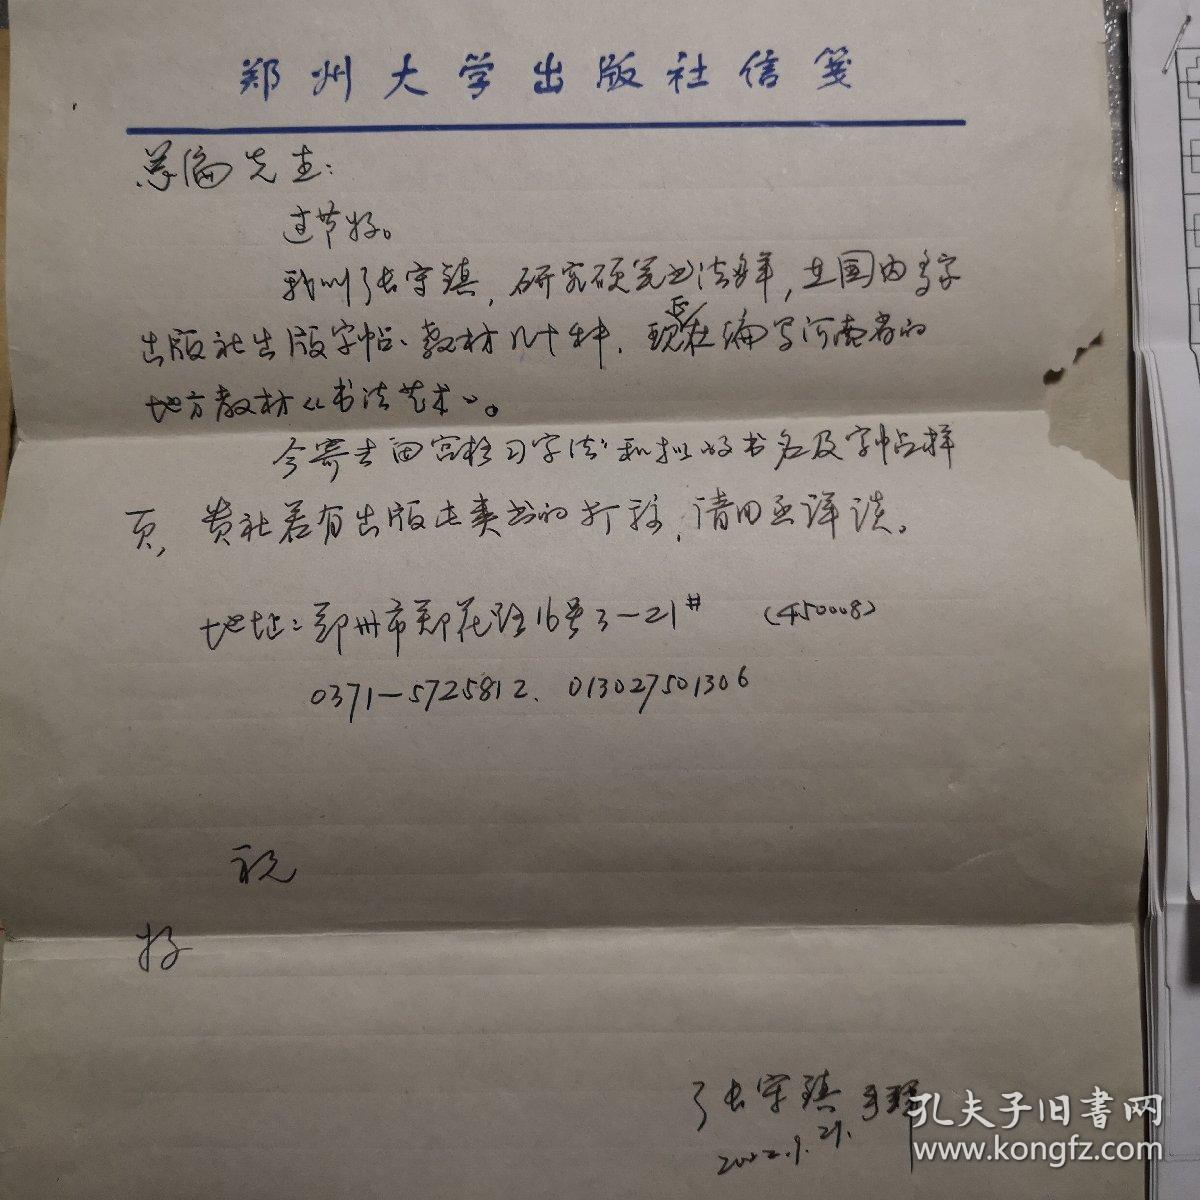 郑州大学出版社信笺
总编先生:
过节好。
我叫张守镇,研究硬笔书法多年,在国内多家
出版社出版字帖、教材几十种,现正在编写河南省的
地方教材《书法艺术》。
今寄去田字格习字法和拟好书名及字帖样
页,贵社若有出版此类书的打算,请回函详谈。
地址:郑州市郑花路16号3-21# (450008)
0371-5725812、013027501306
祝
好
张守镇
2002.9.21.
孔夫子旧書网
www.kongfz.com